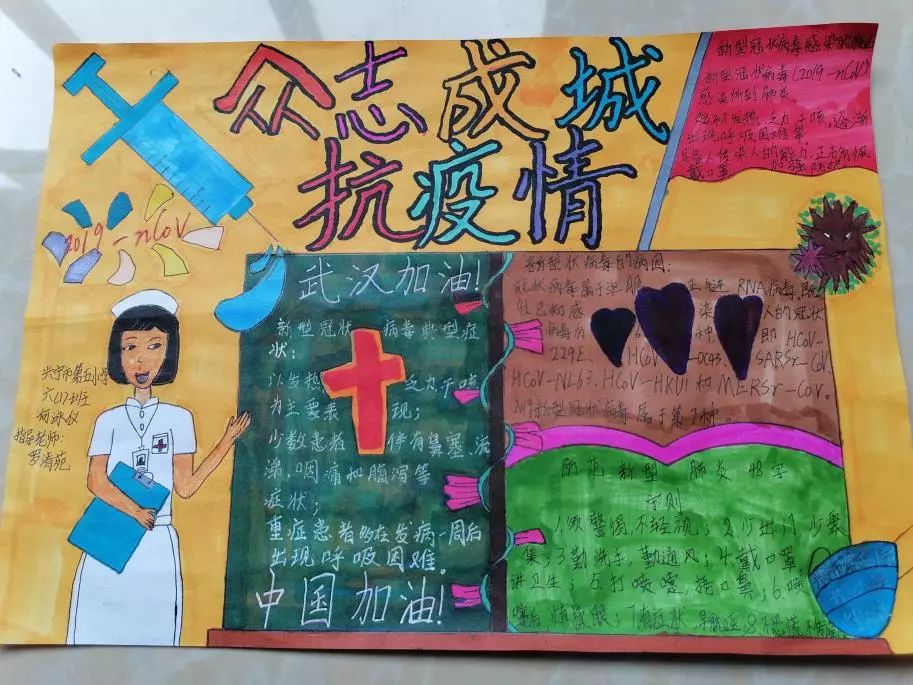 众志成城
抗疫情
新型冠状病毒感染的
新型冠状病毒(2019-nCoV)
感染所到肺炎。
出现呼吸困难等
戴口罩
2019-nCoV
兴宁市第五小学
六(7)班
指导老师:
罗清苑
武汉加油!
新型冠状 病毒典型症
状:
以发热 乏力干咳
为主要表 现;
少数患者 伴有鼻塞、流
涕、咽痛和腹泻等
症状;
重症患者多在发病一周后
出现呼吸困难。
中国加油!
新型状病毒的病因:
冠状病毒属于单 正链 RNA病毒。
感 染 人的冠状
病毒有 种 即 HCoV-
229E、 HCoV-OC43、SARSr-CoV
HCoV-NL63、HCoV-HKU1和MERSr-CoV。
2019新型冠状病毒属于第7种。
防范新型 肺炎 字
守则
1.须警惕,不轻视;2少出门少聚
集;3勤洗手,勤通风;4.戴口罩
讲卫生;5.打喷嚏,捂口鼻;6.喷
嚏后慎揉眼;7.有症状 早就医;8不恐慌不